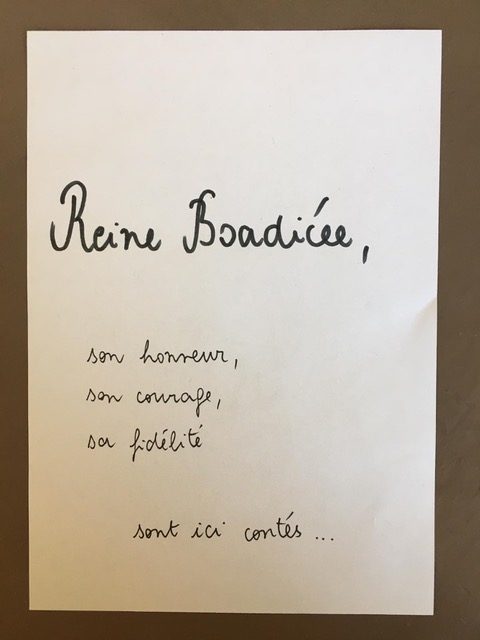 Reine Boadicée,
son honneur,
son courage,
sa fidélité
sont ici contés ...